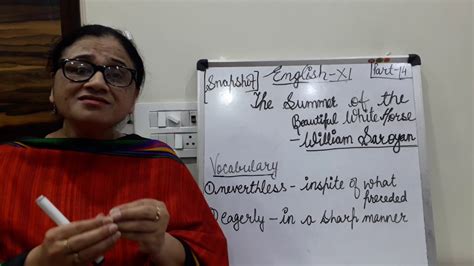 [Snapshot] English-XI Part-14
The Summer of the
Beautiful White Horse
- William Saroyan
Vocabulary
① nevertheless - inspite of what
preceded
② eagerly - in a sharp manner